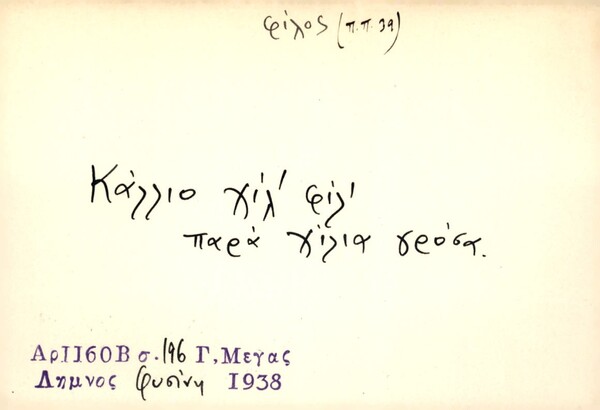 φίλος (π.π. 39)
Κάλλιο χίλ' φίλ'
παρά χίλια γρόσα.
Αρ1160Β σ. 196 Γ, Μεγας
Λημνος Φυσίνη 1938